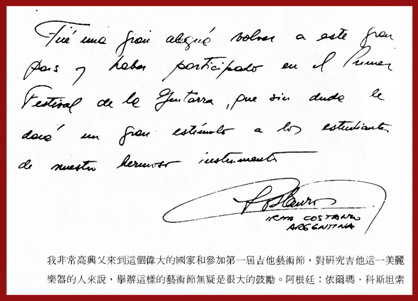 Fué una gran alegría volver a este gran
pais y haber participado en el Primer
Festival de la Guitarra, que sin duda le
dará un gran estímulo a los estudiantes
de nuestro hermoso instrumento
IRMA COSTANZO
ARGENTINA
我非常高興又來到這個偉大的國家和參加第一屆吉他藝術節，對研究吉他這一美麗
樂器的人來說，舉辦這樣的藝術節無疑是很大的鼓勵。阿根廷：依爾瑪·科斯坦索